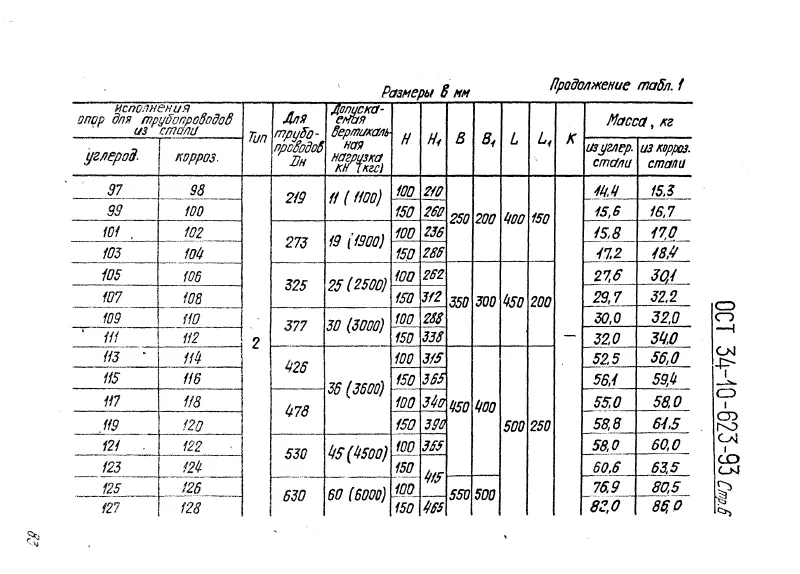 Размеры в мм
Продолжение табл. 1
исполнения опор для трубопроводов из стали | Тип | Для трубопроводов Dн | Допускаемая вертикальная нагрузка кН (кгс) | H | H1 | B | B1 | L | L1 | K | Масса, кг
углерод. | корроз. | из углер. стали | из корроз. стали
97 | 98 | 2 | 219 | 11 (1100) | 100 | 210 | 250 | 200 | 400 | 150 | — | 14,4 | 15,3
99 | 100 | 150 | 260 | 15,6 | 16,7
101 | 102 | 273 | 19 (1900) | 100 | 236 | 15,8 | 17,0
103 | 104 | 150 | 286 | 17,2 | 18,4
105 | 106 | 325 | 25 (2500) | 100 | 262 | 350 | 300 | 450 | 200 | 27,6 | 30,1
107 | 108 | 150 | 312 | 29,7 | 32,2
109 | 110 | 377 | 30 (3000) | 100 | 288 | 30,0 | 32,0
111 | 112 | 150 | 338 | 32,0 | 34,0
113 | 114 | 426 | 36 (3600) | 100 | 315 | 450 | 400 | 500 | 250 | 52,5 | 56,0
115 | 116 | 150 | 365 | 56,1 | 59,4
117 | 118 | 478 | 100 | 340 | 55,0 | 58,0
119 | 120 | 150 | 390 | 58,8 | 61,5
121 | 122 | 530 | 45 (4500) | 100 | 365 | 58,0 | 60,0
123 | 124 | 150 | 415 | 60,6 | 63,5
125 | 126 | 630 | 60 (6000) | 100 | 550 | 500 | 76,9 | 80,5
127 | 128 | 150 | 465 | 82,0 | 86,0
ОСТ 34-10-623-93 Стр.6
83